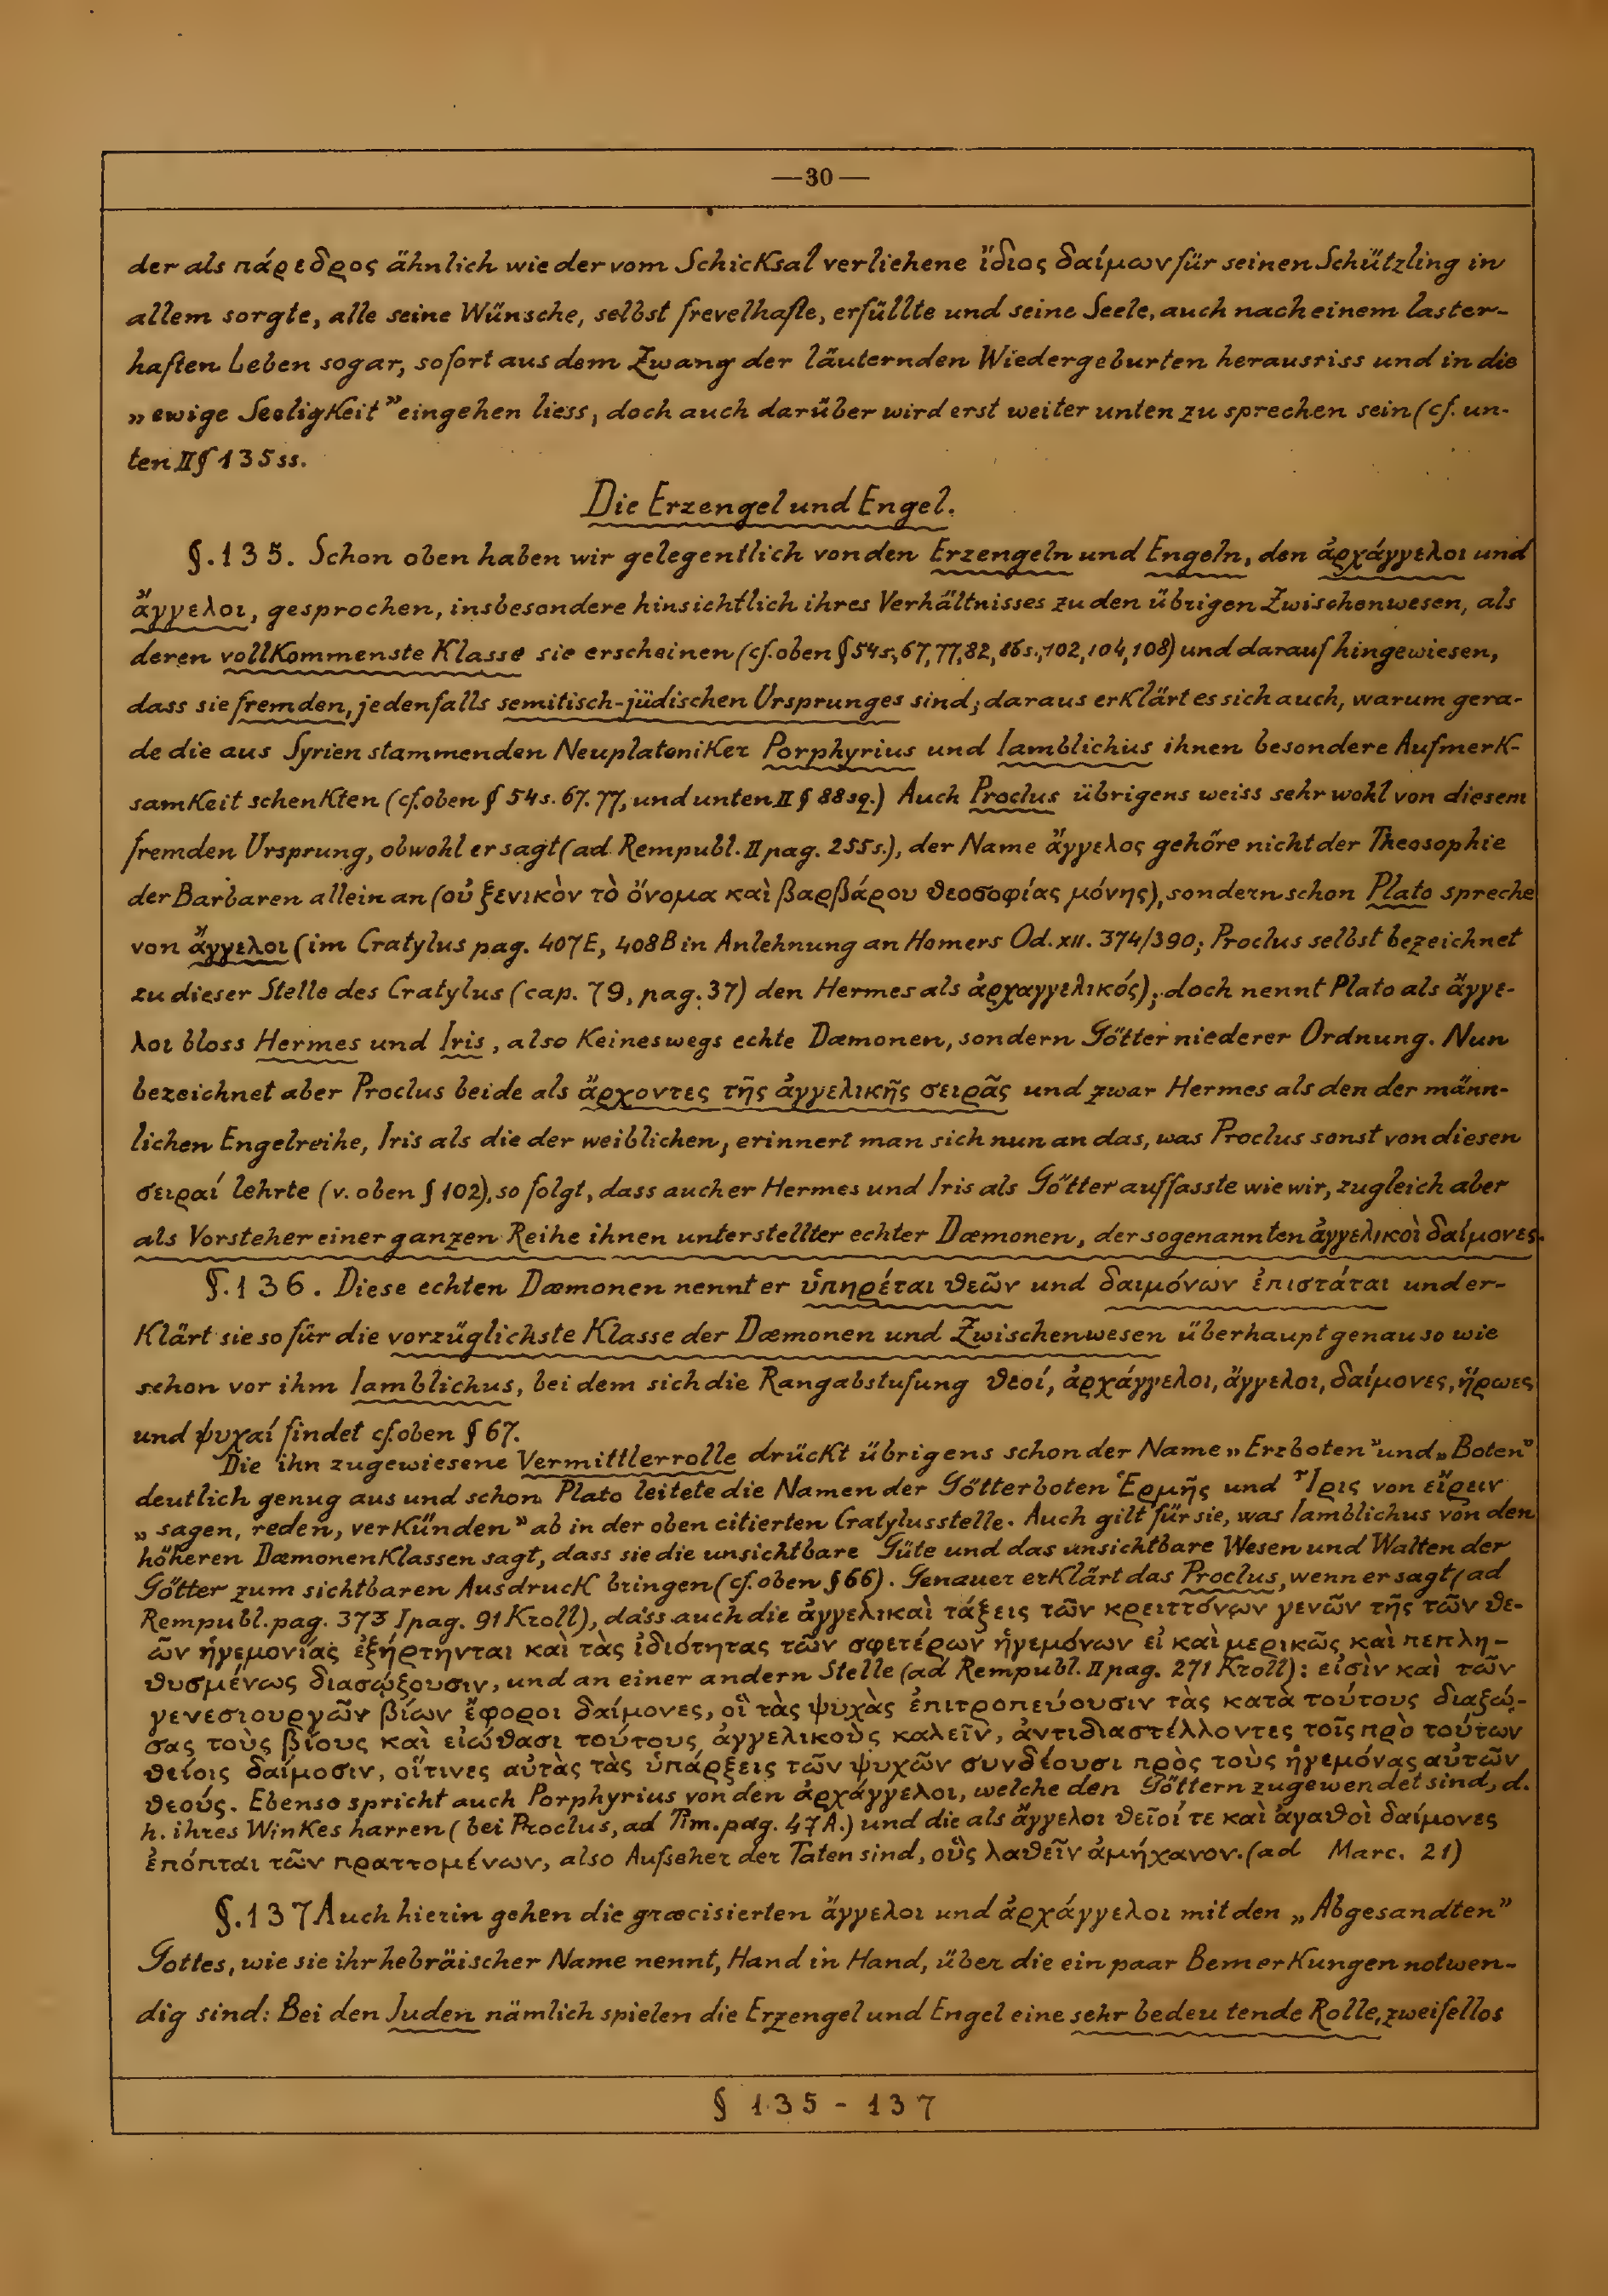 —30—
der als πάρεδρος ähnlich wie der vom Schicksal verliehene ἴδιος δαίμων für seinen Schützling in
allem sorgte, alle seine Wünsche, selbst frevelhafte, erfüllte und seine Seele, auch nach einem laster-
haften Leben sogar, sofort aus dem Zwang der läuternden Wiedergeburten herausriss und in die
„ewige Seeligkeit" eingehen liess, doch auch darüber wird erst weiter unten zu sprechen sein (cf. un-
ten II § 135 ss.
Die Erzengel und Engel.
§. 135. Schon oben haben wir gelegentlich von den Erzengeln und Engeln, den ἀρχάγγελοι und
ἄγγελοι, gesprochen, insbesondere hinsichtlich ihres Verhältnisses zu den übrigen Zwischenwesen, als
deren vollkommenste Klasse sie erscheinen (cf. oben § 54 s., 67, 77, 82, 86 s., 102, 104, 108) und darauf hingewiesen,
dass sie fremden, jedenfalls semitisch-jüdischen Ursprunges sind; daraus erklärt es sich auch, warum gera-
de die aus Syrien stammenden Neuplatoniker Porphyrius und Iamblichus ihnen besondere Aufmerk-
samkeit schenkten (cf. oben § 54 s. 67. 77, und unten II § 88 sq.) Auch Proclus übrigens weiss sehr wohl von diesem
fremden Ursprung, obwohl er sagt (ad Rempubl. II pag. 255 s.), der Name ἄγγελος gehöre nicht der Theosophie
der Barbaren allein an (οὐ ξενικὸν τὸ ὄνομα καὶ βαρβάρου θεοσοφίας μόνης), sondern schon Plato spreche
von ἄγγελοι (im Cratylus pag. 407 E, 408 B in Anlehnung an Homers Od. XII. 374/390; Proclus selbst bezeichnet
zu dieser Stelle des Cratylus (cap. 79, pag. 37) den Hermes als ἀρχαγγελικός); doch nennt Plato als ἄγγε-
λοι bloss Hermes und Iris, also keineswegs echte Dæmonen, sondern Götter niederer Ordnung. Nun
bezeichnet aber Proclus beide als ἄρχοντες τῆς ἀγγελικῆς σειρᾶς und zwar Hermes als den der männ-
lichen Engelreihe, Iris als die der weiblichen; erinnert man sich nun an das, was Proclus sonst von diesen
σειραί lehrte (v. oben § 102), so folgt, dass auch er Hermes und Iris als Götter auffasste wie wir, zugleich aber
als Vorsteher einer ganzen Reihe ihnen unterstellter echter Dæmonen, der sogenannten ἀγγελικοὶ δαίμονες.
§. 136. Diese echten Dæmonen nennt er ὑπηρέται θεῶν und δαιμόνων ἐπιστάται und er-
klärt sie so für die vorzüglichste Klasse der Dæmonen und Zwischenwesen überhaupt genau so wie
schon vor ihm Iamblichus, bei dem sich die Rangabstufung θεοί, ἀρχάγγελοι, ἄγγελοι, δαίμονες, ἥρωες
und ψυχαί findet cf. oben § 67.
Die ihn zugewiesene Vermittlerrolle drückt übrigens schon der Name „Erzboten" und „Boten"
deutlich genug aus und schon Plato leitete die Namen der Götterboten Ἑρμῆς und Ἶρις von εἴρειν
„sagen, reden, verkünden" ab in der oben citierten Cratylusstelle. Auch gilt für sie, was Iamblichus von den
höheren Dæmonenklassen sagt, dass sie die unsichtbare Güte und das unsichtbare Wesen und Walten der
Götter zum sichtbaren Ausdruck bringen (cf. oben § 66). Genauer erklärt das Proclus, wenn er sagt (ad
Rempubl. pag. 373 I pag. 91 Kroll), dass auch die ἀγγελικαὶ τάξεις τῶν κρειττόνων γενῶν τῆς τῶν θε-
ῶν ἡγεμονίας ἐξήρτηνται καὶ τὰς ἰδιότητας τῶν σφετέρων ἡγεμόνων εἰ καὶ μερικῶς καὶ πεπλη-
θυσμένως διασῴζουσιν, und an einer andern Stelle (ad Rempubl. II pag. 271 Kroll): εἰσὶν καὶ τῶν
γενεσιουργῶν βίων ἔφοροι δαίμονες, οἳ τὰς ψυχὰς ἐπιτροπεύουσιν τὰς κατὰ τούτους διαζώ-
σας τοὺς βίους καὶ εἰώθασι τούτους ἀγγελικοὺς καλεῖν, ἀντιδιαστέλλοντες τοῖς πρὸ τούτων
θείοις δαίμοσιν, οἵτινες αὐτὰς τὰς ὑπάρξεις τῶν ψυχῶν συνδέουσι πρὸς τοὺς ἡγεμόνας αὐτῶν
θεούς. Ebenso spricht auch Porphyrius von den ἀρχάγγελοι, welche den Göttern zugewendet sind, d.
h. ihres Winkes harren (bei Proclus, ad Tim. pag. 47 A.) und die als ἄγγελοι θεῖοί τε καὶ ἀγαθοὶ δαίμονες
ἐπόπται τῶν πραττομένων, also Aufseher der Taten sind, οὓς λαθεῖν ἀμήχανον. (ad Marc. 21)
§. 137 Auch hierin gehen die græcisierten ἄγγελοι und ἀρχάγγελοι mit den „Abgesandten"
Gottes, wie sie ihr hebräischer Name nennt, Hand in Hand, über die ein paar Bemerkungen notwen-
dig sind: Bei den Juden nämlich spielen die Erzengel und Engel eine sehr bedeutende Rolle, zweifellos
§ 135 - 137